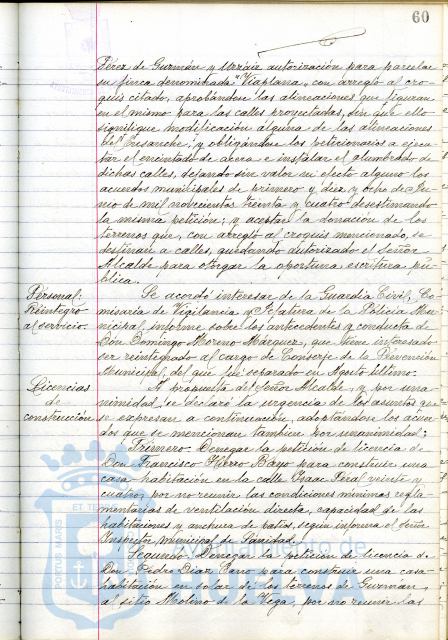 60
Pérez de Guzmán y Urzáiz autorización para parcelar
su finca denominada "Viaplana", con arreglo al cro-
quis citado, aprobándose las alineaciones que figuran
en el mismo para las calles proyectadas, sin que ello
signifique modificación alguna de las alineaciones
del Ensanche; y obligándose los peticionarios a ejecu-
tar el encintado de acera e instalar el alumbrado de
dichas calles, dejando sin valor ni efecto alguno los
acuerdos municipales de primero y diez y ocho de Ju-
nio de mil novecientos treinta y cuatro desestimando
la misma petición; y aceptar la donación de los
terrenos que, con arreglo al croquis mencionado, se
destinan a calles, quedando autorizado el Señor
Alcalde para otorgar la oportuna escritura pú-
blica.
Personal:
Reintegro
al servicio.
Se acordó interesar de la Guardia Civil, Co-
misaría de Vigilancia y Jefatura de la Policía Mu-
nicipal informe sobre los antecedentes y conducta de
Don Domingo Moreno Márquez, que tiene interesado
ser reintegrado al cargo de Conserje de la Prevención
Municipal, del que fué separado en Agosto último.
Licencias
de
construcción
A propuesta del Señor Alcalde, y por una-
nimidad, se declaró la urgencia de los asuntos que
se expresan a continuación, adoptándose los acuer-
dos que se mencionan tambien por unanimidad:
Primero. Denegar la petición de licencia de
Don Francisco Hierro Bayo para construir una
casa habitación en la calle Isaac Peral veinte y
cuatro, por no reunir las condiciones mínimas regla-
mentarias de ventilación directa, capacidad de las
habitaciones y anchura de patios, según informa el Señor
Inspector municipal de Sanidad.
Segundo. Denegar la petición de licencia de
Don Pedro Díaz Cano para construir una casa-
habitación en solar de los terrenos de Guzmán,
al sitio Molino de la Vega, por no reunir las
PORTUS MARIS ET TERRAE
Ayuntamiento de
HUELVA